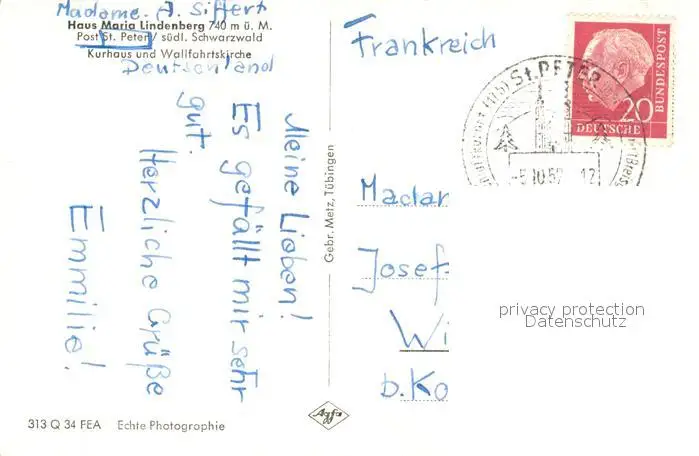 Madame. J. Siffert
Haus Maria Lindenberg 740 m ü. M.
Post St. Peter / südl. Schwarzwald
Kurhaus und Wallfahrtskirche
Deutschland
Meine Lieben!
Es gefällt mir sehr
gut.
Herzliche Grüße
Emmilie!
Gebr. Metz, Tübingen
Frankreich
St. PETER
20
DEUTSCHE
BUNDESPOST
Madam
Josef
Wi
b. Ko
privacy protection
Datenschutz
Agfa
313 Q 34 FEA Echte Photographie